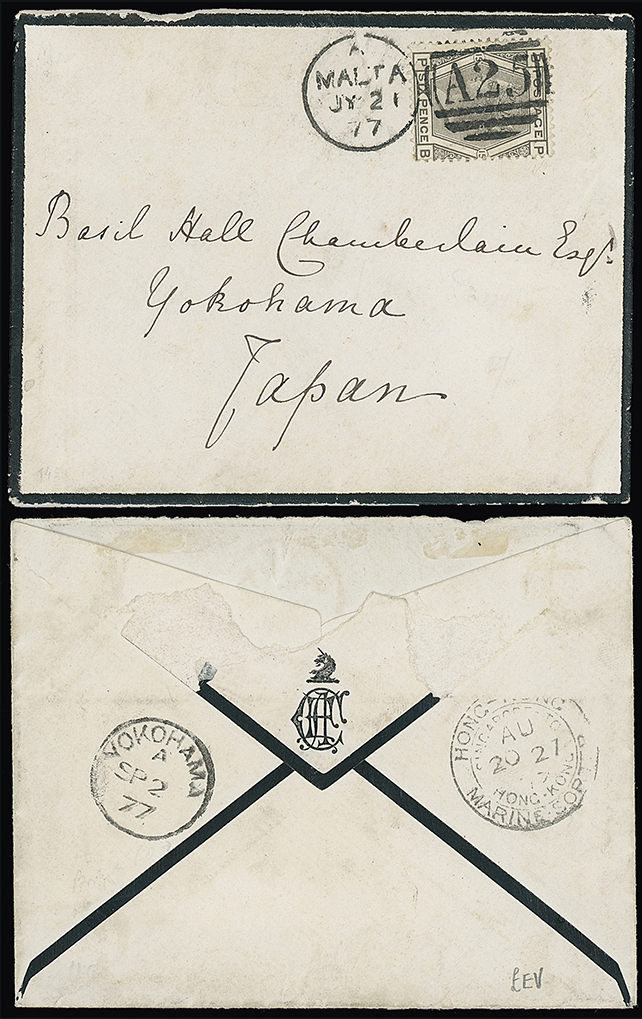 A
MALTA
JY 21
77
A25
SIX PENCE
POSTAGE
P
B
B
P
Basil Hall Chamberlain Esqr.
Yokohama
Japan
YOKOHAMA
A
SP 2
77
HONG-KONG
SINGAPORE TO
AU
20 27
7
HONG-KONG
MARINE SOR
£EV